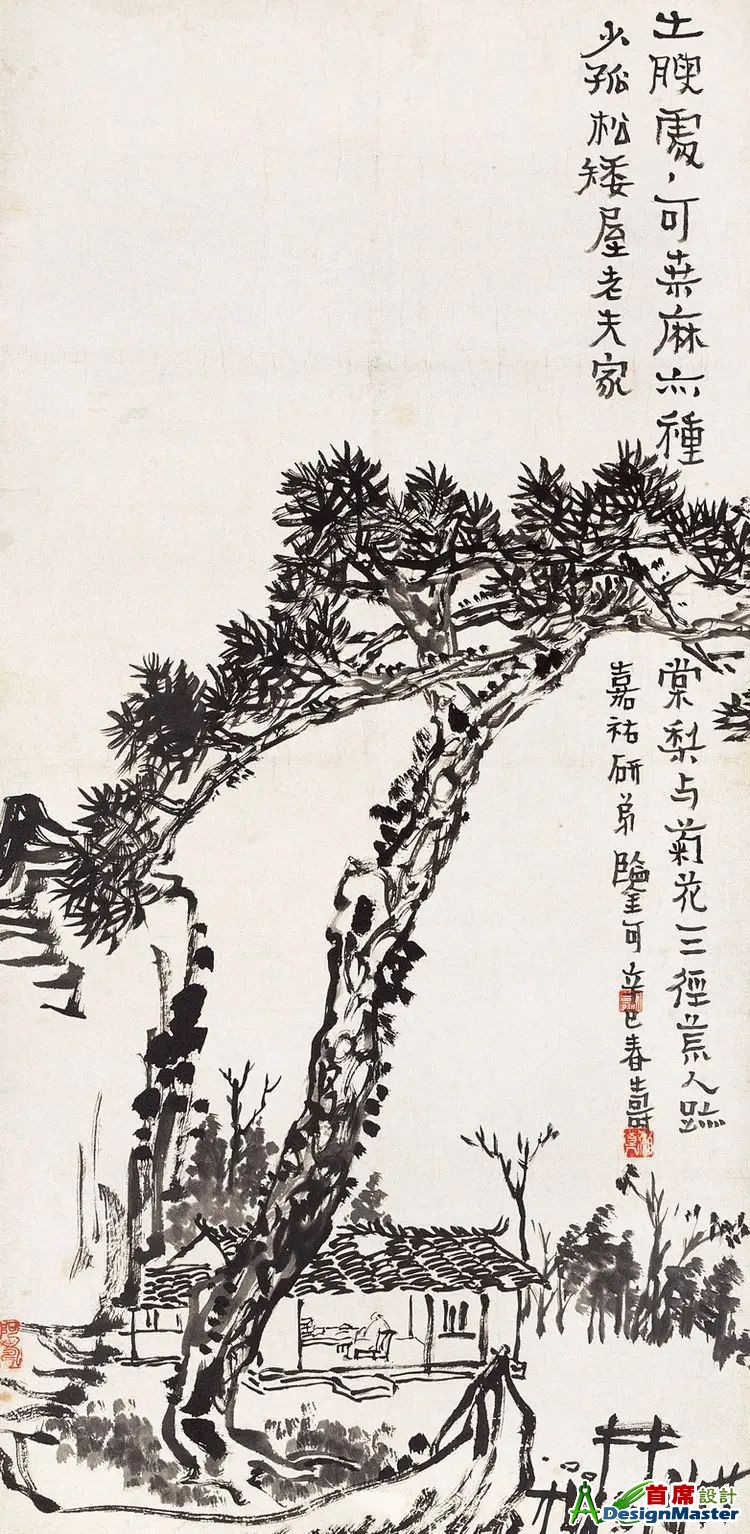 土腴處々可桒麻亦種
棠梨与菊花三徑荒人跡
少孤松矮屋老夫家
嘉祐研弟鑒可辛巳春壽
首席設計
ADesignMaster